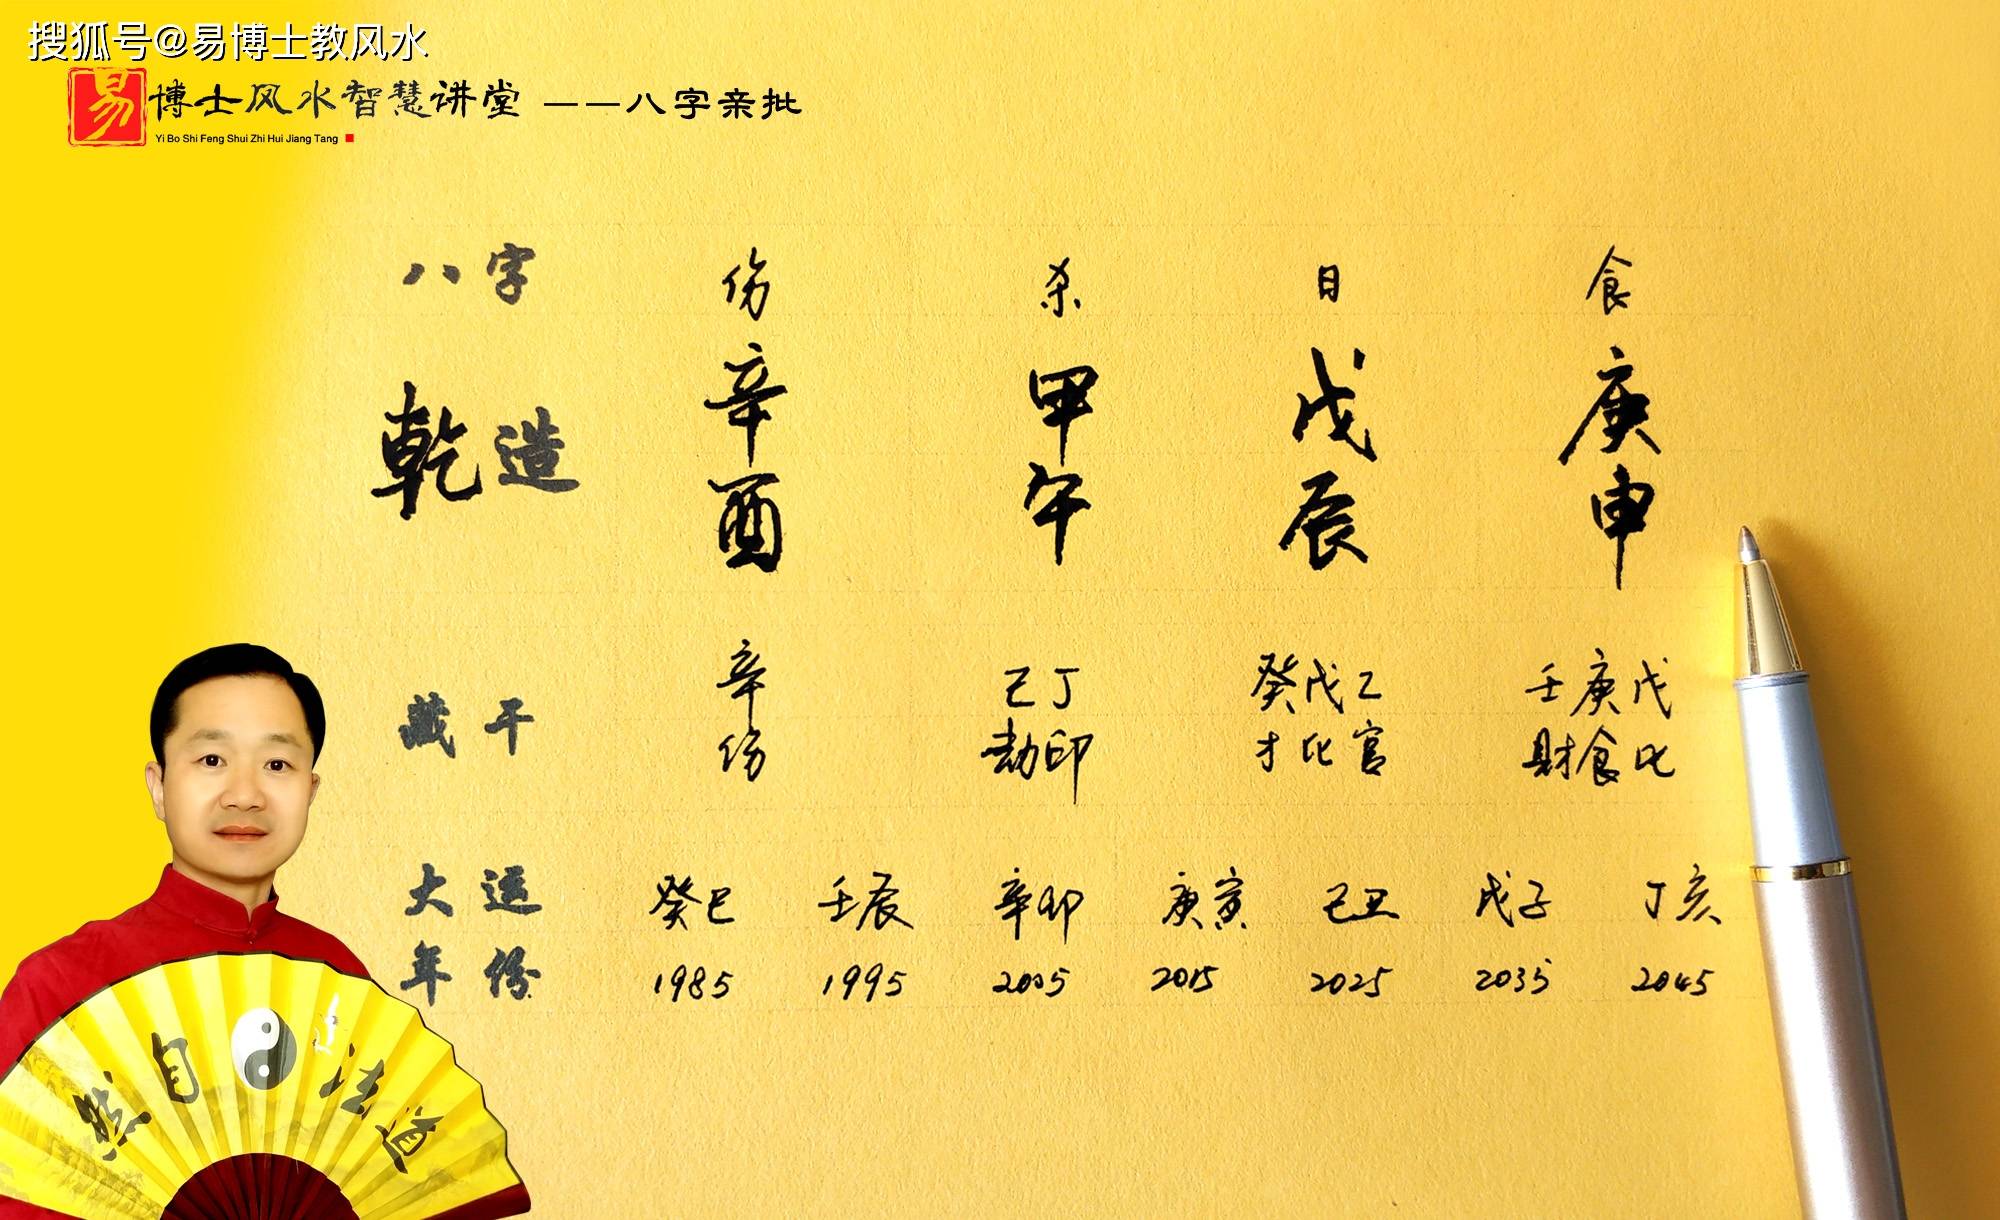 搜狐号@易博士教风水
易博士风水智慧讲堂 ——八字亲批
Yi Bo Shi Feng Shui Zhi Hui Jiang Tang
八字 伤 杀 日 食
乾造 辛 甲 戊 庚
酉 午 辰 申
藏干 辛 己丁 癸戊乙 壬庚戊
伤 劫印 才比官 财食比
大运 癸巳 壬辰 辛卯 庚寅 己丑 戊子 丁亥
年份 1985 1995 2005 2015 2025 2035 2045
然自法道